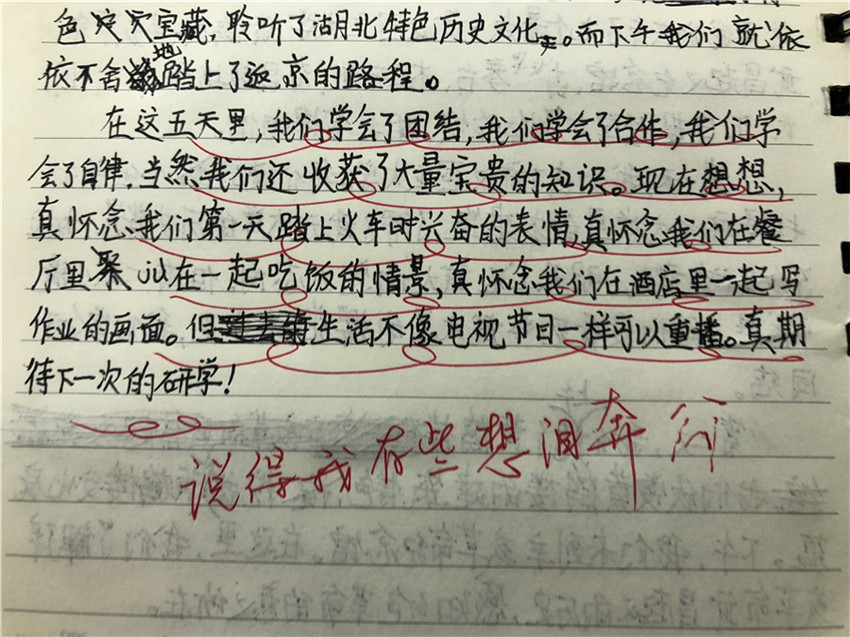 色灾灾宝藏，聆听了湖北特色历史文化。而下午我们就依
依不舍地踏上了返京的路程。
在这五天里，我们学会了团结，我们学会了合作，我们学
会了自律。当然我们还收获了大量宝贵的知识。现在想想，
真怀念我们第一天踏上火车时兴奋的表情，真怀念我们在餐
厅里聚在一起吃饭的情景，真怀念我们在酒店里一起写
作业的画面。但生活不像电视节目一样可以重播。真期
待下一次的研学！
说得我有些想泪奔